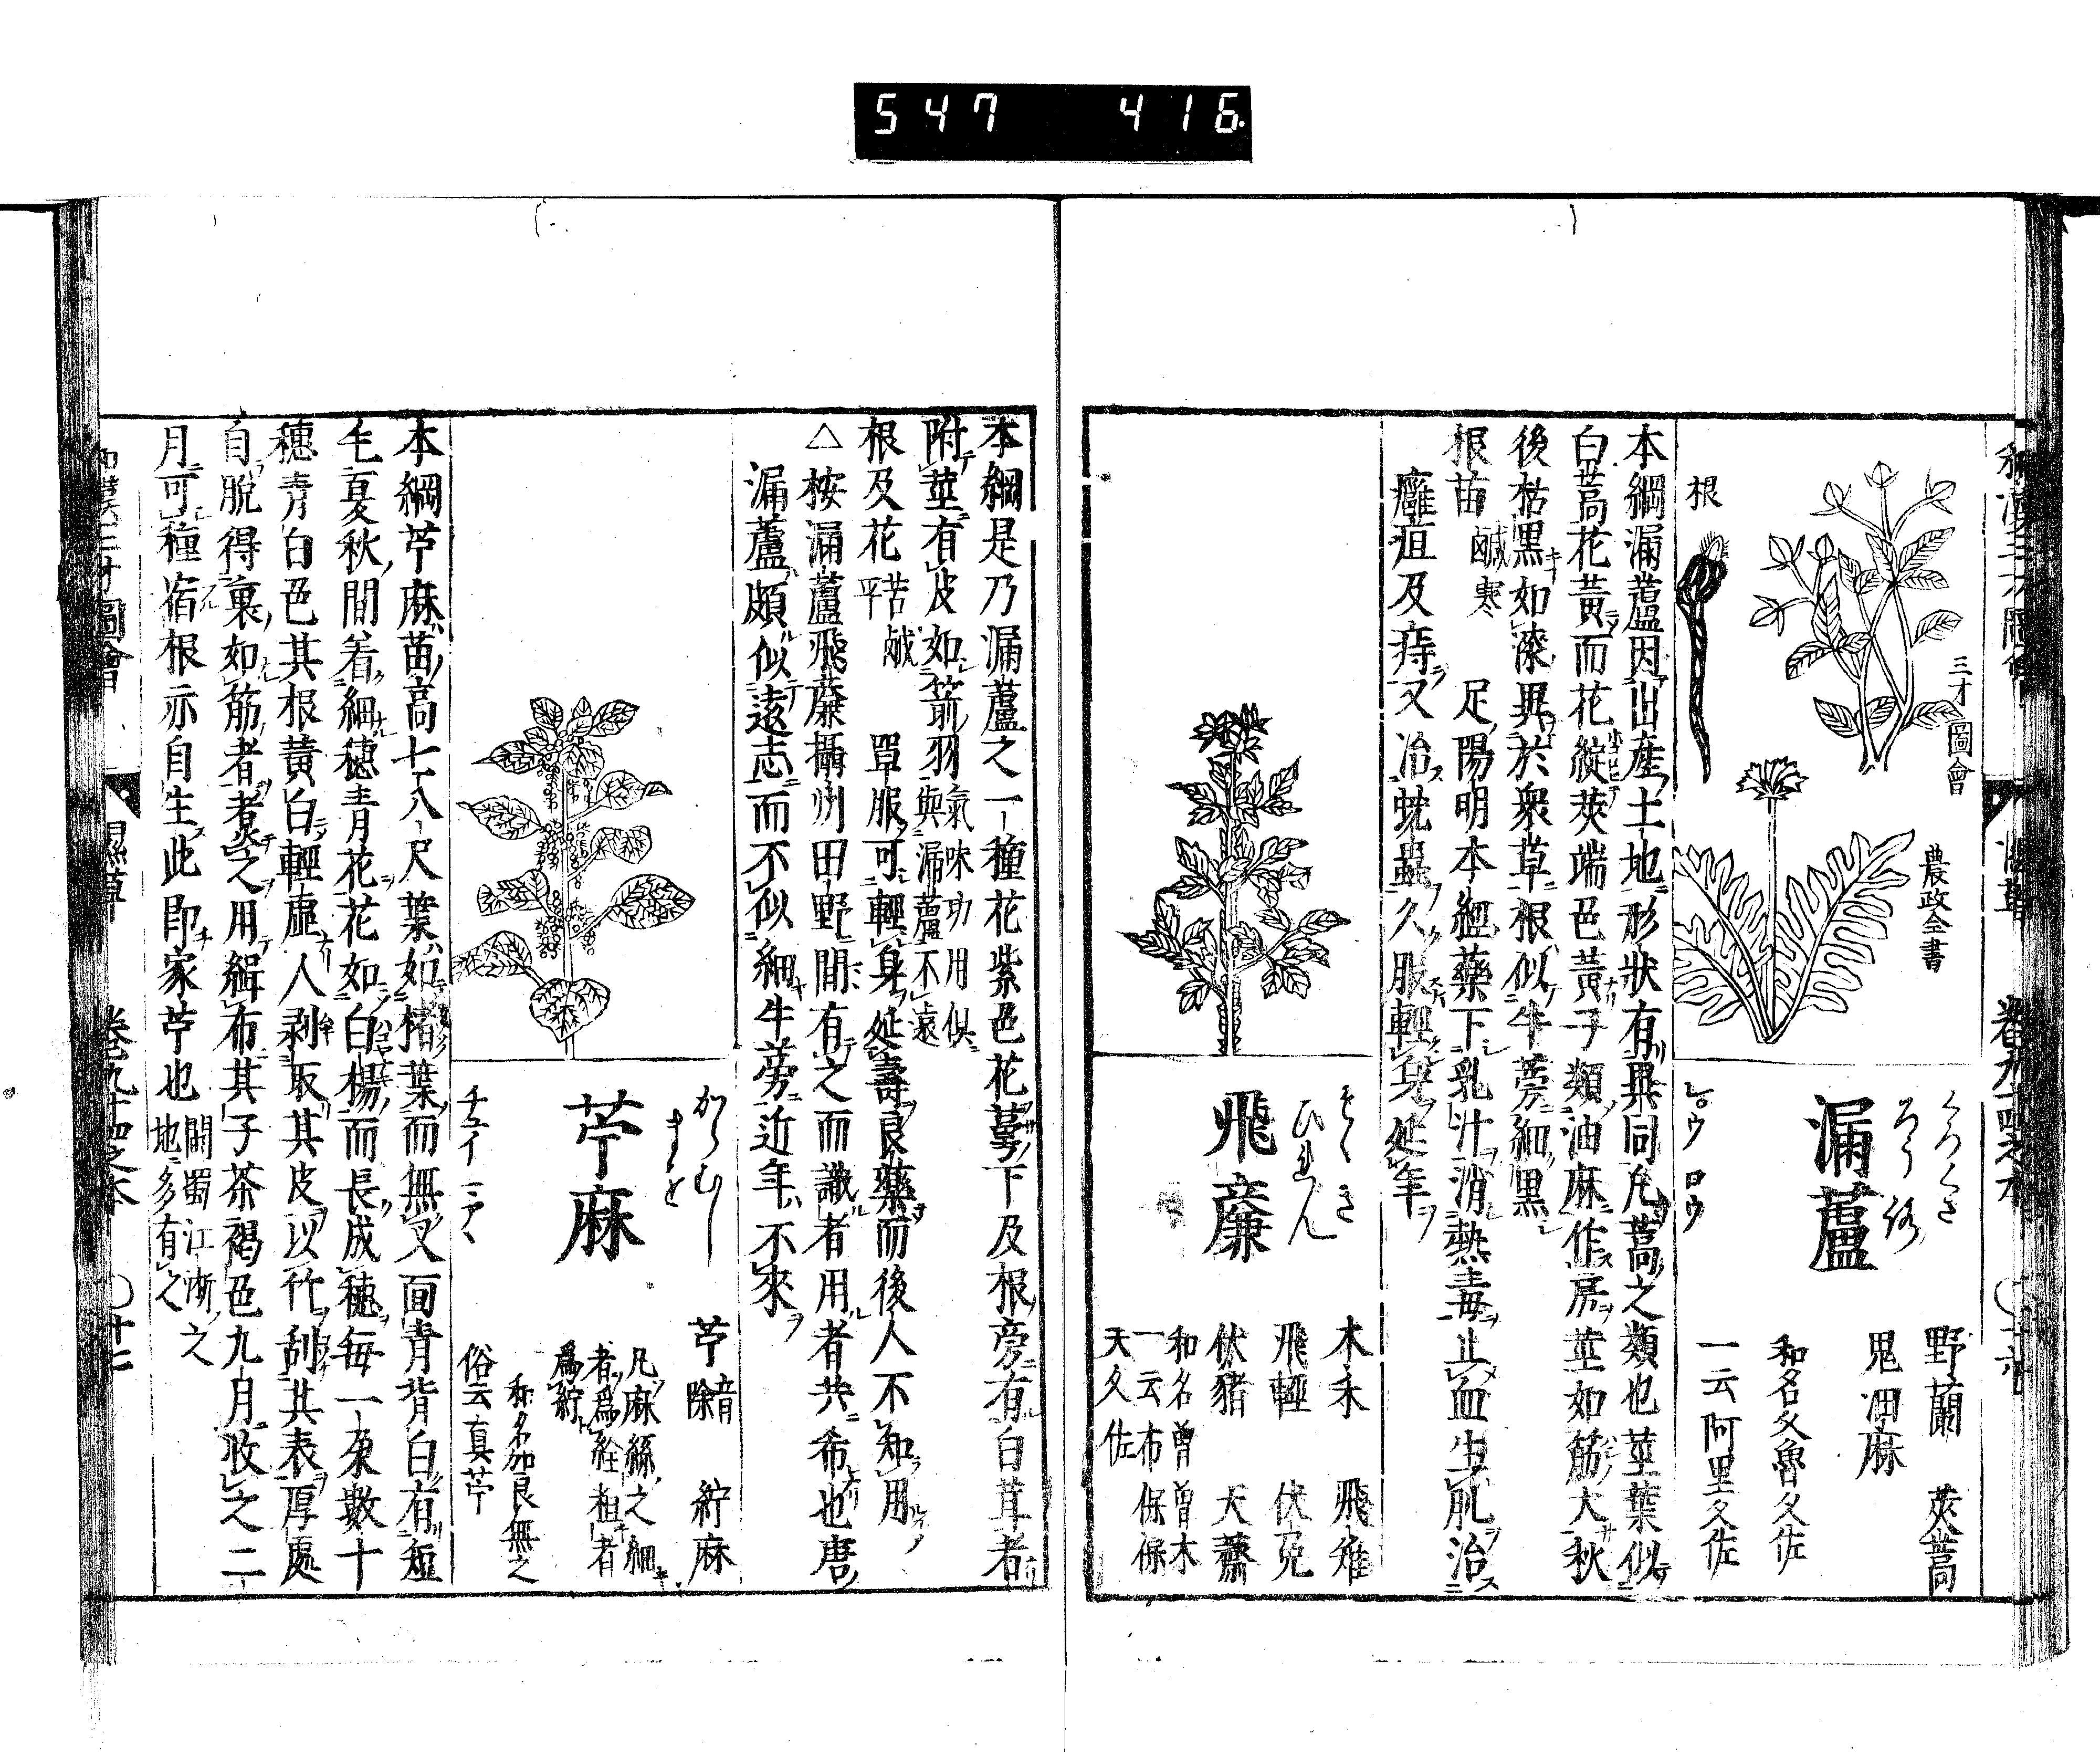 547 416
三才圖會
根
農政全書
くろくさ
ろう路
漏蘆
レ゚ウ ロウ
野蘭 莢蒿
鬼油麻
和名久魯久佐
一云阿里久佐
本綱漏蘆因出産土地形狀有異同凡蒿之類也莖葉似
白蒿花黃而花綻莢端色黃子類油麻作房莖如筋大秋
後枯黑如漆異於衆草根似牛蒡細黑
根苗 鹹寒 足陽明本經藥下乳汁消熱毒止血生肌治
癰疽及痔又治蚘蟲久服輕身延年
そゝき
ひれん
飛廉
木禾 飛雉
飛輕 伏兎
伏猪 天薺
和名曾曾木
一云布保保
天久佐
本綱是乃漏蘆之一種花紫色花蕚下及根旁有白茸者
附莖有皮如箭羽 氣味功用俱
與漏蘆不遠
根及花 苦鹹
平 單服可輕身延壽良藥而後人不知用
△桉漏蘆飛廉攝州田野間有之而識者用者共希也唐
漏蘆頗似遠志而不似細牛蒡近年不來
からむし
まを
苧麻
チユイ マアヽ
苧 音
除 紵麻
凡麻絲之細
者爲絟粗者
爲紵
和名加良無之
俗云真苧
本綱苧麻苗高七八尺葉如楮葉而無叉面青背白有短
毛夏秋間着細穗青花花如白楊而長成穗每一朶數十
穗青白色其根黃白輕虛人剥取其皮以竹刮其表厚處
自脫得裏如筋者煮之用緝布其子茶褐色九月收之二
月可種宿根亦自生此卽家苧也 閩蜀江浙之
地多有之